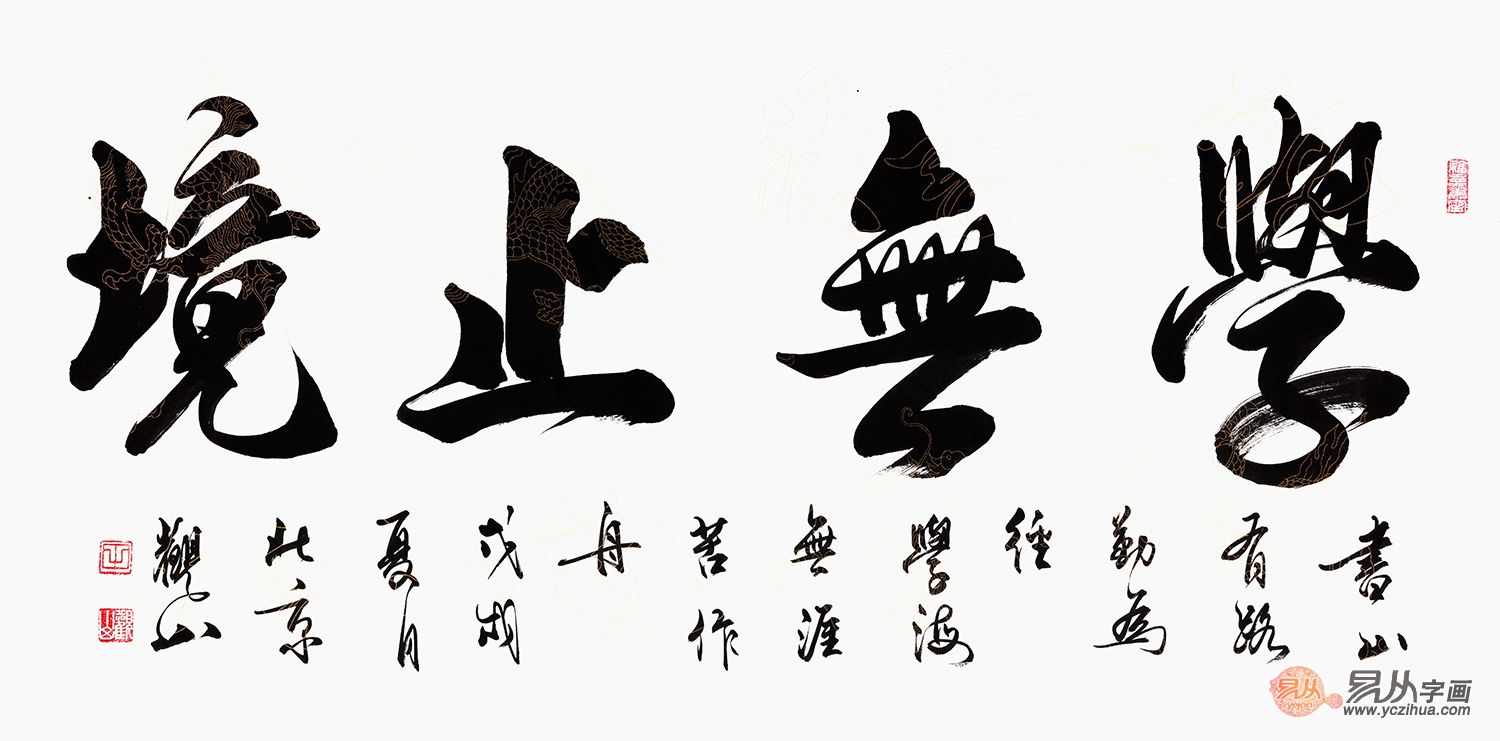 學無止境
書山
有路
勤為
徑
學海
無涯
苦作
舟
戊戌
夏月
北京
觀山
易从
yicon
易从字画
www.yczihua.com